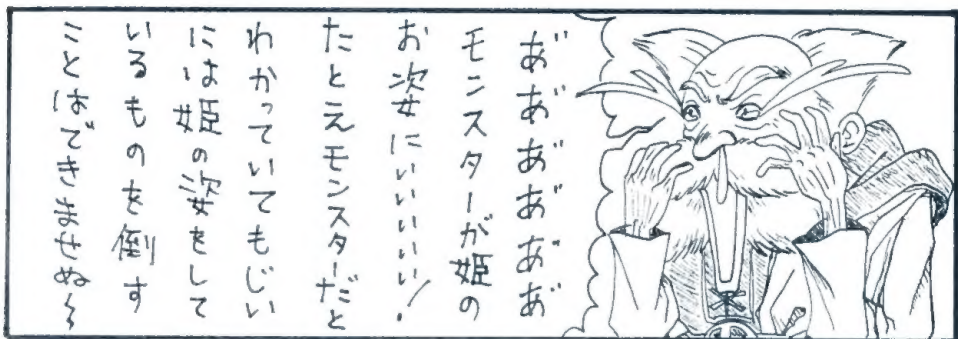 あ゛あ゛あ゛あ゛あ゛あ゛
モンスターが姫の
お姿にいいいいい！
たとえモンスターだと
わかっていてもじい
には姫の姿をして
いるものを倒す
ことはできませぬ〜